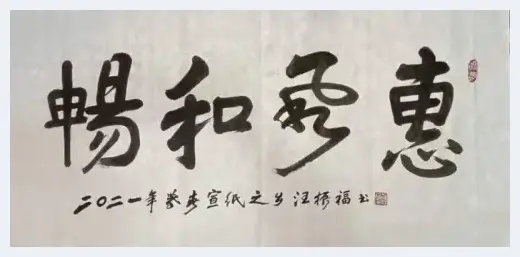 惠风和畅
二〇二一年 春宣纸之乡汪振福书